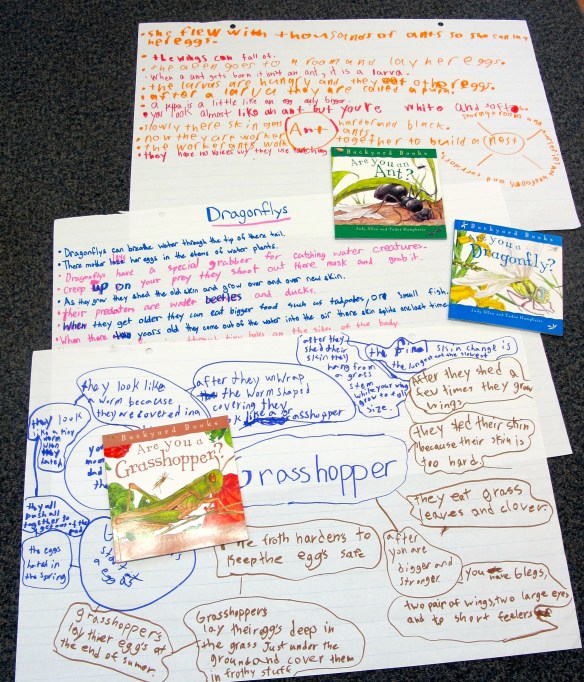 • she flew with thousands of ants so she can lay
her eggs.
• the wings can fall of.
• the queen goes to a room and lay her eggs.
• When a ant gets born it isnt an ant, it is a larva.
• the larvas are hungry and they eat other eggs.
• after a larva they are called a pupa!
• a pupa is a little like an egg only bigger.
• you look almost like an ant but you're white and soft
• slowly there skin gets hard and black.
• now they are worker ants
• the worker ants work together to build a nest
• they have no voices
Ant
nest
Backyard Books
Are you an
Ant?
Judy Allen and Tudor Humphries
Dragonflys
• Dragonflys can breathe water through the tip of there tail.
• There mother lays her eggs in the stems of water plants.
• Dragonflys have a special grabber for catching water creatures.
• Creep up on your prey they shoot out there mask and grab it.
• As they grow they shed the old skin and grow over and over new skin.
• their predators are water beetles and ducks.
• When they get older they can eat bigger food such as tadpoles, or small fish.
• When there years old they come out of the water into the air there skin splits one last time
tiny holes on the sides of the body
Backyard Books
Are you a
Dragonfly?
Judy Allen and Tudor Humphries
Grasshopper
they look like
a worm because
they are covered in a
after they unwrap
the worm shaped
covering they
look like a gr
asshopper
after they
shed their
skin they
hang from
a grass
stem
while your wings
grow to full
size.
the final skin change is
the longest and the slowest
After they shed a
few times they grow
wings.
they shed their skin
because their skin is
too hard.
they eat grass
leaves and clover.
after
you are
bigger and
stronger.
you have 6 legs,
two pair of wings, two large eyes
and to short feelers
they look
like a tiny
worm
when they
hatch
they all
push all
together to
get out of the
the eggs
hated in
the Spring
Backyard Books
Are you a
Grasshopper?
the froth hardens to
Keep the eggs safe
Grasshoppers
lay their eggs deep in
the grass Just under the
ground and cover them
in frothy stuff
grasshoppers
lay thier eggs at
the end of sumer.